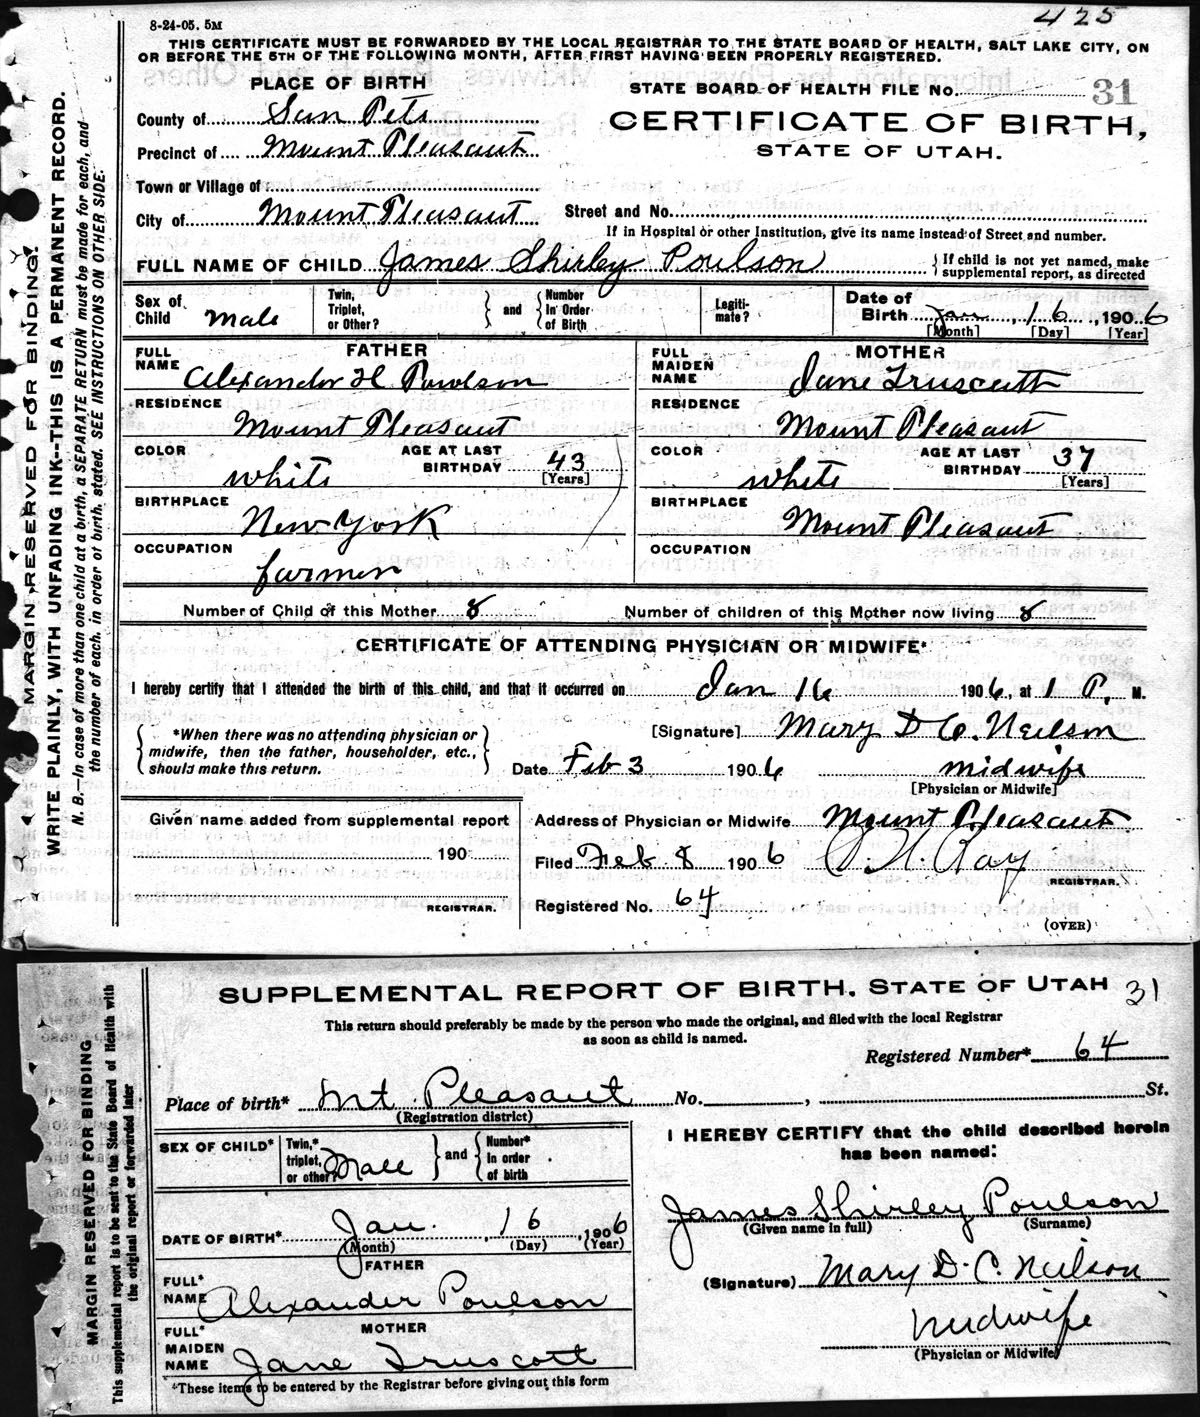 8-24-05. 5M
425
THIS CERTIFICATE MUST BE FORWARDED BY THE LOCAL REGISTRAR TO THE STATE BOARD OF HEALTH, SALT LAKE CITY, ON
OR BEFORE THE 5TH OF THE FOLLOWING MONTH, AFTER FIRST HAVING BEEN PROPERLY REGISTERED.
MARGIN RESERVED FOR BINDING.
WRITE PLAINLY, WITH UNFADING INK--THIS IS A PERMANENT RECORD.
N. B.--In case of more than one child at a birth, a SEPARATE RETURN must be made for each, and
the number of each, in order of birth, stated. SEE INSTRUCTIONS ON OTHER SIDE.
PLACE OF BIRTH
STATE BOARD OF HEALTH FILE No. 31
County of San Pete
CERTIFICATE OF BIRTH,
Precinct of Mount Pleasant
STATE OF UTAH.
Town or Village of
City of Mount Pleasant Street and No.
If in Hospital or other Institution, give its name instead of Street and number.
FULL NAME OF CHILD James Shirley Poulson { If child is not yet named, make
supplemental report, as directed
Sex of Child Male
Twin, Triplet, or Other? } and { Number In Order of Birth
Legiti-mate?
Date of Birth Jan, 16, 1906
[Month] [Day] [Year]
FATHER
FULL NAME Alexander H Powlson
RESIDENCE Mount Pleasant
COLOR white AGE AT LAST BIRTHDAY 43
[Years]
BIRTHPLACE New York
OCCUPATION farmer
MOTHER
FULL MAIDEN NAME Jane Truscutt
RESIDENCE Mount Pleasant
COLOR white AGE AT LAST BIRTHDAY 37
[Years]
BIRTHPLACE Mount Pleasant
OCCUPATION
Number of Child of this Mother 8 Number of children of this Mother now living 8
CERTIFICATE OF ATTENDING PHYSICIAN OR MIDWIFE*
I hereby certify that I attended the birth of this child, and that it occurred on Jan 16 1906, at 1 P. M.
{ *When there was no attending physician or
midwife, then the father, householder, etc.,
should make this return. }
[Signature] Mary D C. Neilson
Date Feb 3 1906 midwife
[Physician or Midwife]
Given name added from supplemental report
190
REGISTRAR.
Address of Physician or Midwife Mount Pleasant
Filed Feb 8 1906
REGISTRAR.
Registered No. 64
(OVER)
MARGIN RESERVED FOR BINDING
This supplemental report is to be sent to the State Board of Health with
the original report or forwarded later
SUPPLEMENTAL REPORT OF BIRTH. STATE OF UTAH 31
This return should preferably be made by the person who made the original, and filed with the local Registrar
as soon as child is named.
Registered Number* 64
Place of birth* Mt. Pleasant No. , St.
(Registration district)
SEX OF CHILD* Male
Twin,* triplet, or other? } and { Number* In order of birth
DATE OF BIRTH* Jan. 16, 1906
(Month) (Day) (Year)
FATHER
FULL* NAME Alexander Poulson
MOTHER
FULL* MAIDEN NAME Jane Truscott
*These items to be entered by the Registrar before giving out this form
I HEREBY CERTIFY that the child described herein
has been named:
James Shirley Poulson
(Given name in full) (Surname)
(Signature) Mary D. C. Neilson
Midwife
(Physician or Midwife)